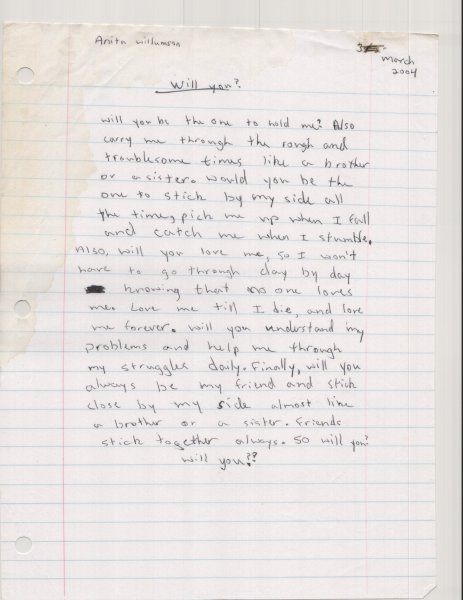 Anita williamson
3
march
2004
Will you?
will you be the one to hold me? Also
carry me through the rough and
troublesome times like a brother
or a sister. would you be the
one to stick by my side all
the time, pick me up when I fall
and catch me when I stumble.
Also, will you love me, so I won't
have to go through day by day
knowing that no one loves
me. Love me till I die, and love
me forever. will you understand my
problems and help me through
my struggles daily. Finally, will you
always be my friend and stick
close by my side almost like
a brother or a sister. Friends
stick together always. So will you?
will you??